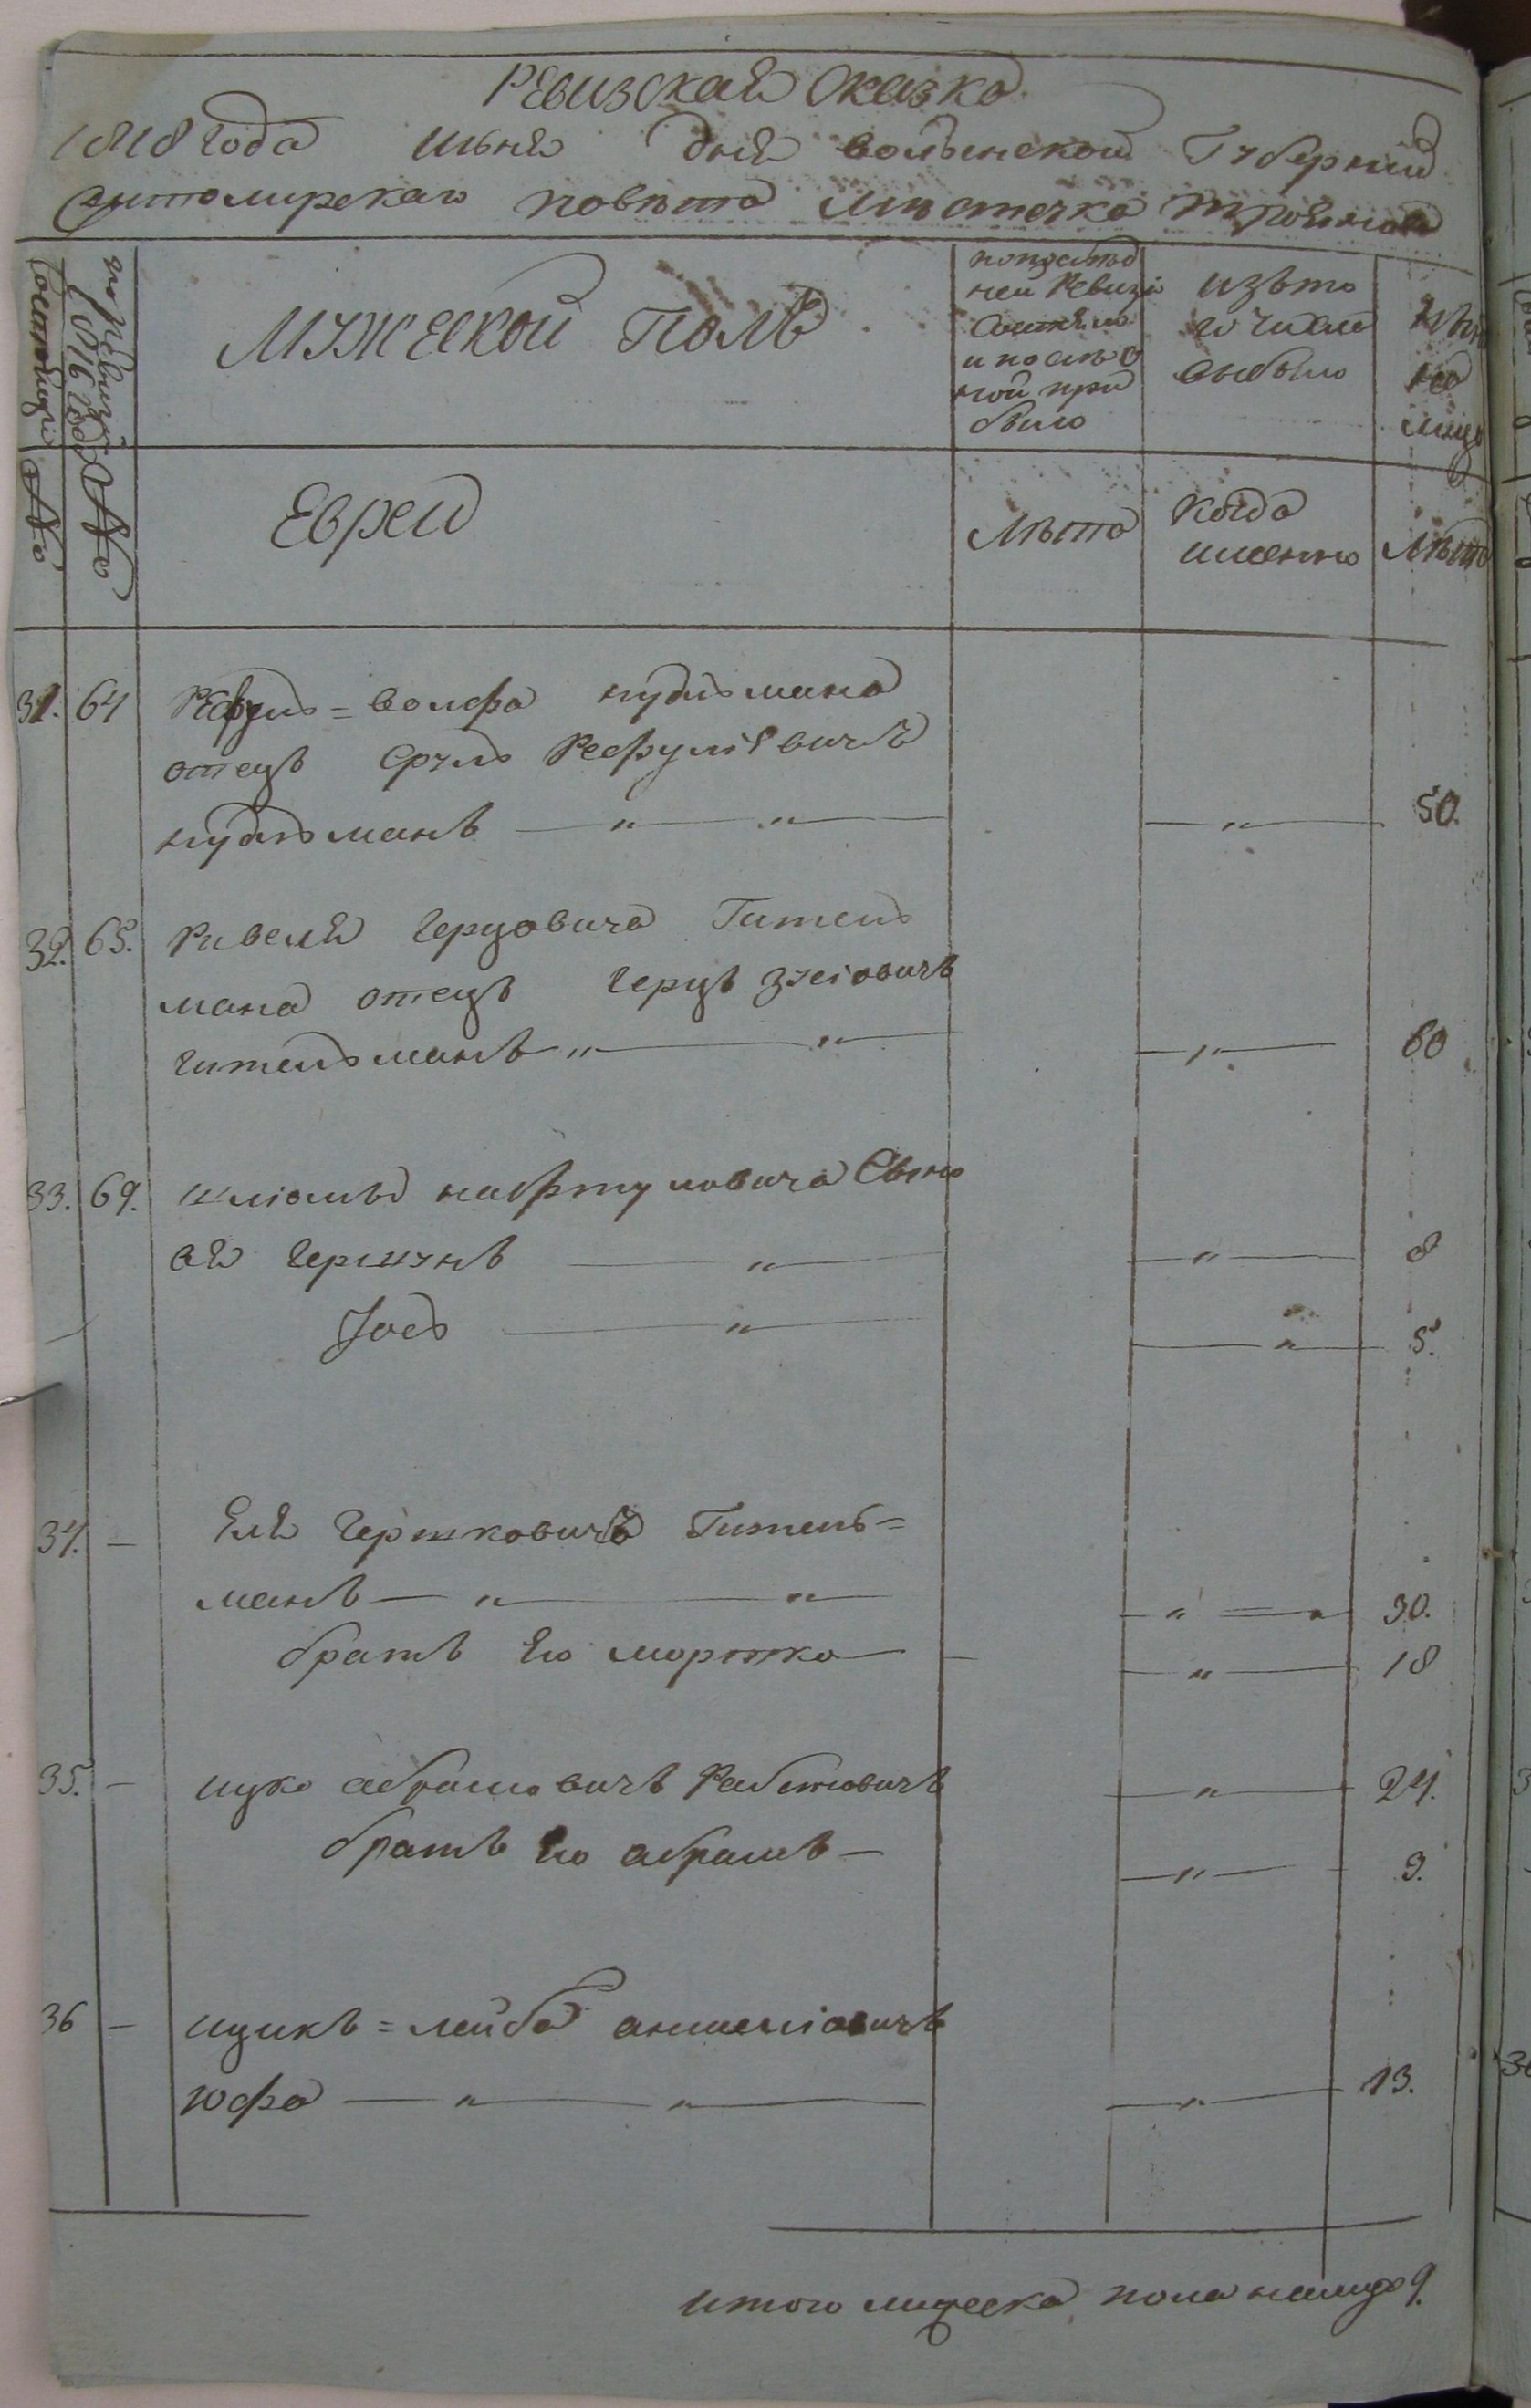 Ревизская Сказка
1818 года июня дня волынской Губернии
житомирскаго повѣта мѣстечка трояновa
Состоящи №
по ревизи 1816 года №
мужеской полъ
попослѣд
ней Ревизи
состяло
и послѣ о
ной при
было
изъто
го числа
выбыло
нынѣ
на
лицо
Евреи
Лѣта
когда
именно
Лѣта
31. 64 Рефуль=волфа нудльмана
отецъ Сруль Рефулiевичъ
нудльманъ — „ — „ — — „ — 50.
32. 65. Ривеля Герцовича Гитель
мана отецъ Герцъ зусiовичъ
гительманъ „ — „ — — „ — 60
33. 69. шлiомы нафтуловича Сыно
вя Гершунъ — „ — — „ — 8
Iось — „ — — „ — 5.
34. — Еля Гершковичъ Гитель=
манъ — „ — „ — — „ — 30.
братъ Его моршко — — „ — 18
35. — ицко абрамовичъ Рабиновичъ — „ — 24.
братъ Его абрамъ — — „ — 9.
36 — ицикъ=лейба аншелiовичъ
юфа — „ — „ — — „ — 13.
итого мужеска пола налицо 9.